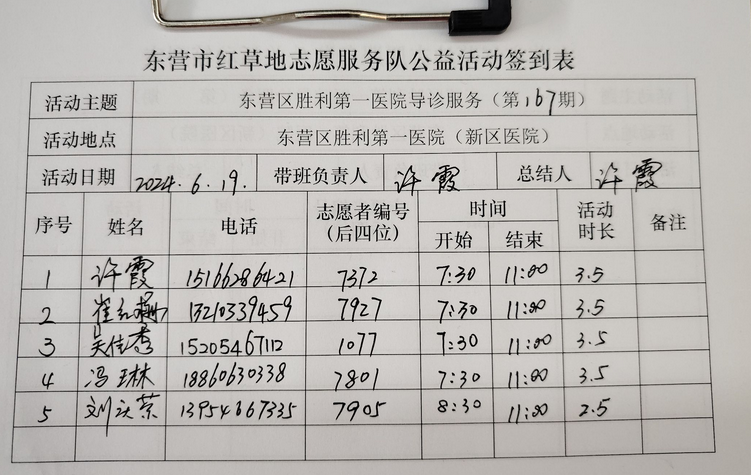 东营市红草地志愿服务队公益活动签到表
活动主题 东营区胜利第一医院导诊服务（第167期）
活动地点 东营区胜利第一医院（新区医院）
活动日期 2024.6.19. 带班负责人 许霞 总结人 许霞
序号 姓名 电话 志愿者编号（后四位） 时间 开始 结束 活动时长 备注
1 许霞 15166286421 7372 7:30 11:00 3.5
2 崔红梅 13210339459 7927 7:30 11:00 3.5
3 吴佳秀 15205467112 1077 7:30 11:00 3.5
4 冯琳 18860630338 7801 7:30 11:00 3.5
5 刘庆荣 13954667335 7905 8:30 11:00 2.5